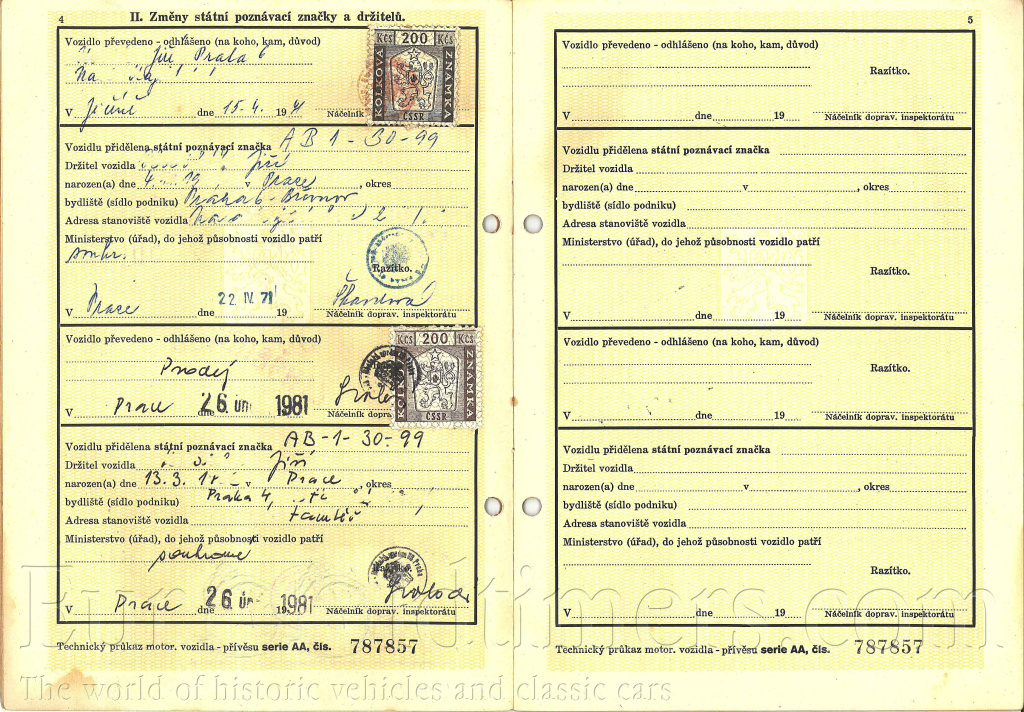 4
II. Změny státní poznávací značky a držitelů.
Vozidlo převedeno - odhlášeno (na koho, kam, důvod)
Jiří Praha 6
Na
V Jičíně dne 15. 4. 19 71 Náčelník
Kčs 200 Kčs
KOLKOVÁ ZNÁMKA
ČSSR
Vozidlu přidělena státní poznávací značka AB 1-30-99
Držitel vozidla Jiří
narozen(a) dne 4. 19 v Praze, okres
bydliště (sídlo podniku) Praha 6 - Břevnov
Adresa stanoviště vozidla
Ministerstvo (úřad), do jehož působnosti vozidlo patří
soukr.
Razítko.
V Praze dne 22 IV. 71 19
Náčelník doprav. inspektorátu
Vozidlo převedeno - odhlášeno (na koho, kam, důvod)
Prodej
V Praze dne 26. ÚNO 1981 Náčelník
Kčs 200 Kčs
KOLKOVÁ ZNÁMKA
ČSSR
Vozidlu přidělena státní poznávací značka AB-1-30-99
Držitel vozidla Jiří
narozen(a) dne 13.3. v Praze, okres
bydliště (sídlo podniku) Praha 4,
Adresa stanoviště vozidla tamtéž
Ministerstvo (úřad), do jehož působnosti vozidlo patří
soukromé
Razítko.
V Praze dne 26. ÚNO 1981
Náčelník doprav. inspektorátu
Technický průkaz motor. vozidla - přívěsu serie AA, čís. 787857
5
Vozidlo převedeno - odhlášeno (na koho, kam, důvod)
Razítko.
V dne 19 Náčelník doprav. inspektorátu
Vozidlu přidělena státní poznávací značka
Držitel vozidla
narozen(a) dne v , okres
bydliště (sídlo podniku)
Adresa stanoviště vozidla
Ministerstvo (úřad), do jehož působnosti vozidlo patří
Razítko.
V dne 19 Náčelník doprav. inspektorátu
Vozidlo převedeno - odhlášeno (na koho, kam, důvod)
Razítko.
V dne 19 Náčelník doprav. inspektorátu
Vozidlu přidělena státní poznávací značka
Držitel vozidla
narozen(a) dne v , okres
bydliště (sídlo podniku)
Adresa stanoviště vozidla
Ministerstvo (úřad), do jehož působnosti vozidlo patří
Razítko.
V dne 19 Náčelník doprav. inspektorátu
Technický průkaz motor. vozidla - přívěsu serie AA, čís. 787857
The world of historic vehicles and classic cars